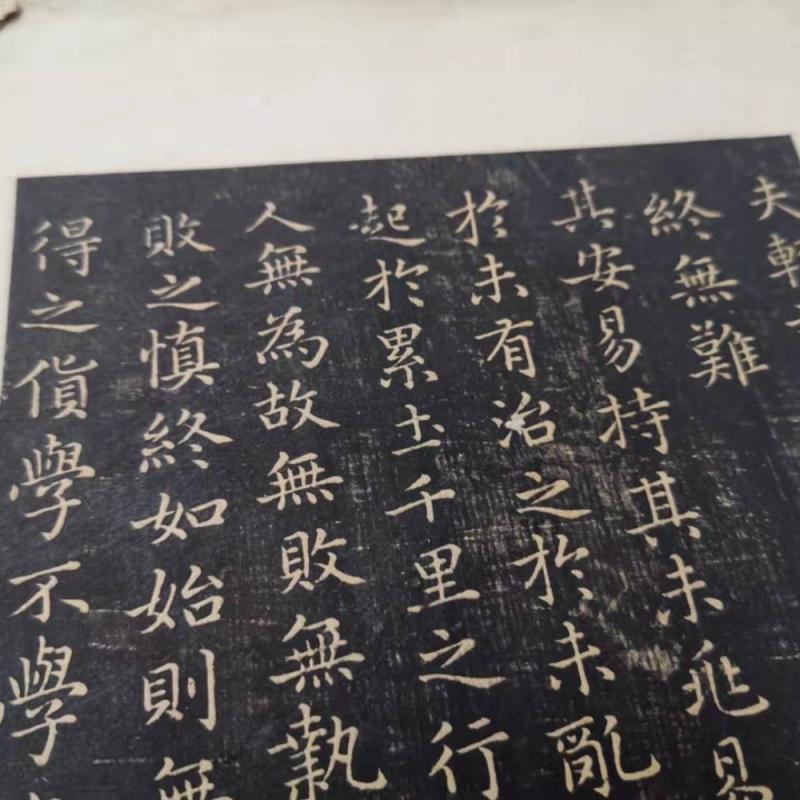 夫輕
終無難
其安易持其未兆易
於未有治之於未亂
起於累土千里之行
人無為故無敗無執
敗之慎終如始則無
得之貨學不學